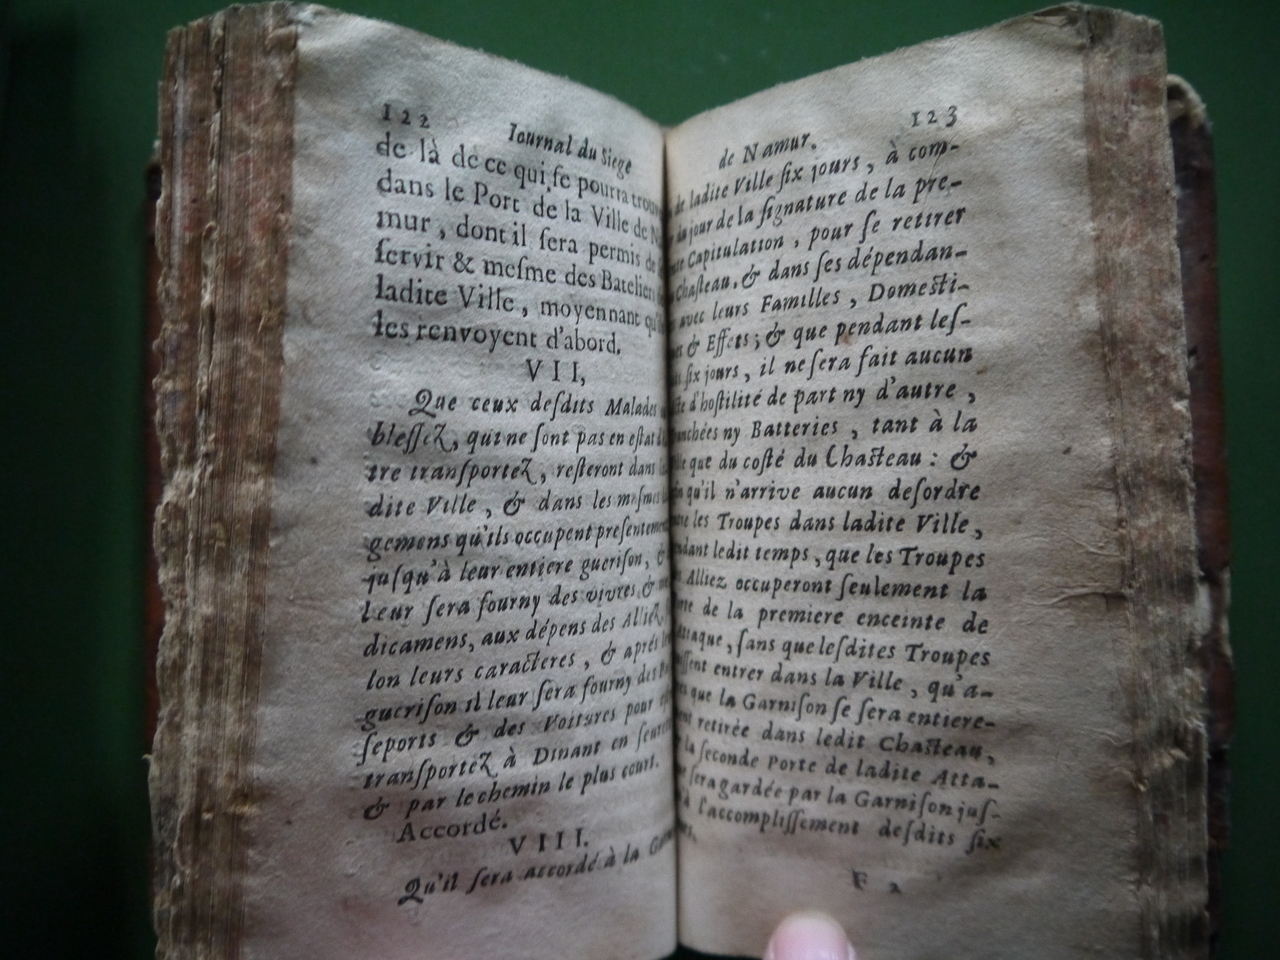 122 Iournal du Siege
de là de ce qui se pourra
dans le Port de la Ville de
mur, dont il sera permis de
servir & mesme des Bateliers
ladite Ville, moyennant
les renvoyent d'abord.
VII,
Que ceux desdits Malades
blessez, qui ne sont pas en estat
tre transportez, resteront dans
dite Ville, & dans les mesmes
gemens qu'ils occupent presentement
jusqu'à leur entiere guerison,
leur sera fourny des vivres &
dicamens, aux dépens des Alliez
lon leurs caracteres, & aprés
guerison il leur sera fourny des
seports & des Voitures pour
transportez à Dinant en
& par le chemin le plus court.
Accordé.
VIII.
Qu'il sera accordé à la
de Namur. 123
de ladite Ville six jours, à com-
jour de la signature de la pre-
Capitulation, pour se retirer
Chasteau, & dans ses dépendan-
avec leurs Familles, Domesti-
& Effets; & que pendant les-
six jours, il ne sera fait aucun
d'hostilité de part ny d'autre,
ny Batteries, tant à la
que du costé du Chasteau: &
qu'il n'arrive aucun desordre
les Troupes dans ladite Ville,
ledit temps, que les Troupes
Alliez occuperont seulement la
de la premiere enceinte de
sans que lesdites Troupes
entrer dans la Ville, qu'a-
que la Garnison se sera entiere-
retirée dans ledit Chasteau,
la seconde Porte de ladite Atta-
sera gardée par la Garnison jus-
l'accomplissement desdits six
F 2